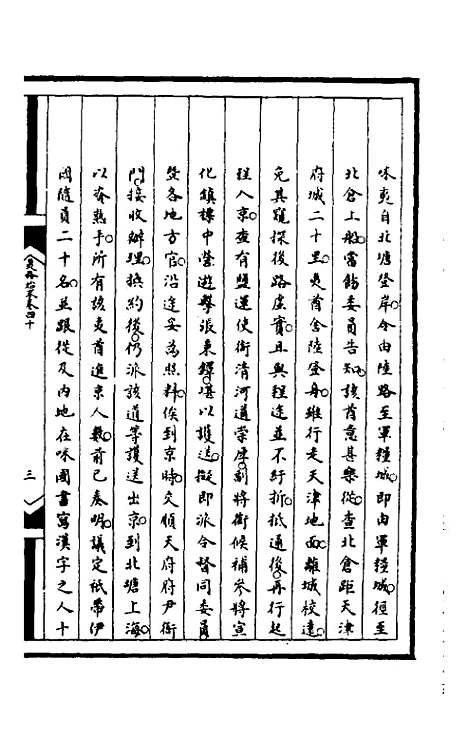 咪夷自北塘登岸令由陸路至軍糧城即由軍糧城徑至
北倉上船當飭委員告知該酋意甚樂從查北倉距天津
府城二十里夷酋舍陸登舟雖行走天津地面離城校遠
免其窺探後路虛實且與程途並不紆折抵通後再行起
程入京查有鹽運使銜清河道崇厚副將銜候補參將宣
化鎮標中營遊擊張秉鐸堪以護送擬即派令督同委員
暨各地方官沿途妥為照料俟到京時交順天府府尹衙
門接收辦理換約後仍派該道等護送出京到北塘上海
以資熟手所有該夷酋進京人數前已奏明議定祇帶伊
國隨員二十名並跟從及內地在咪國書寫漢字之人十
夷務始末卷四十
三